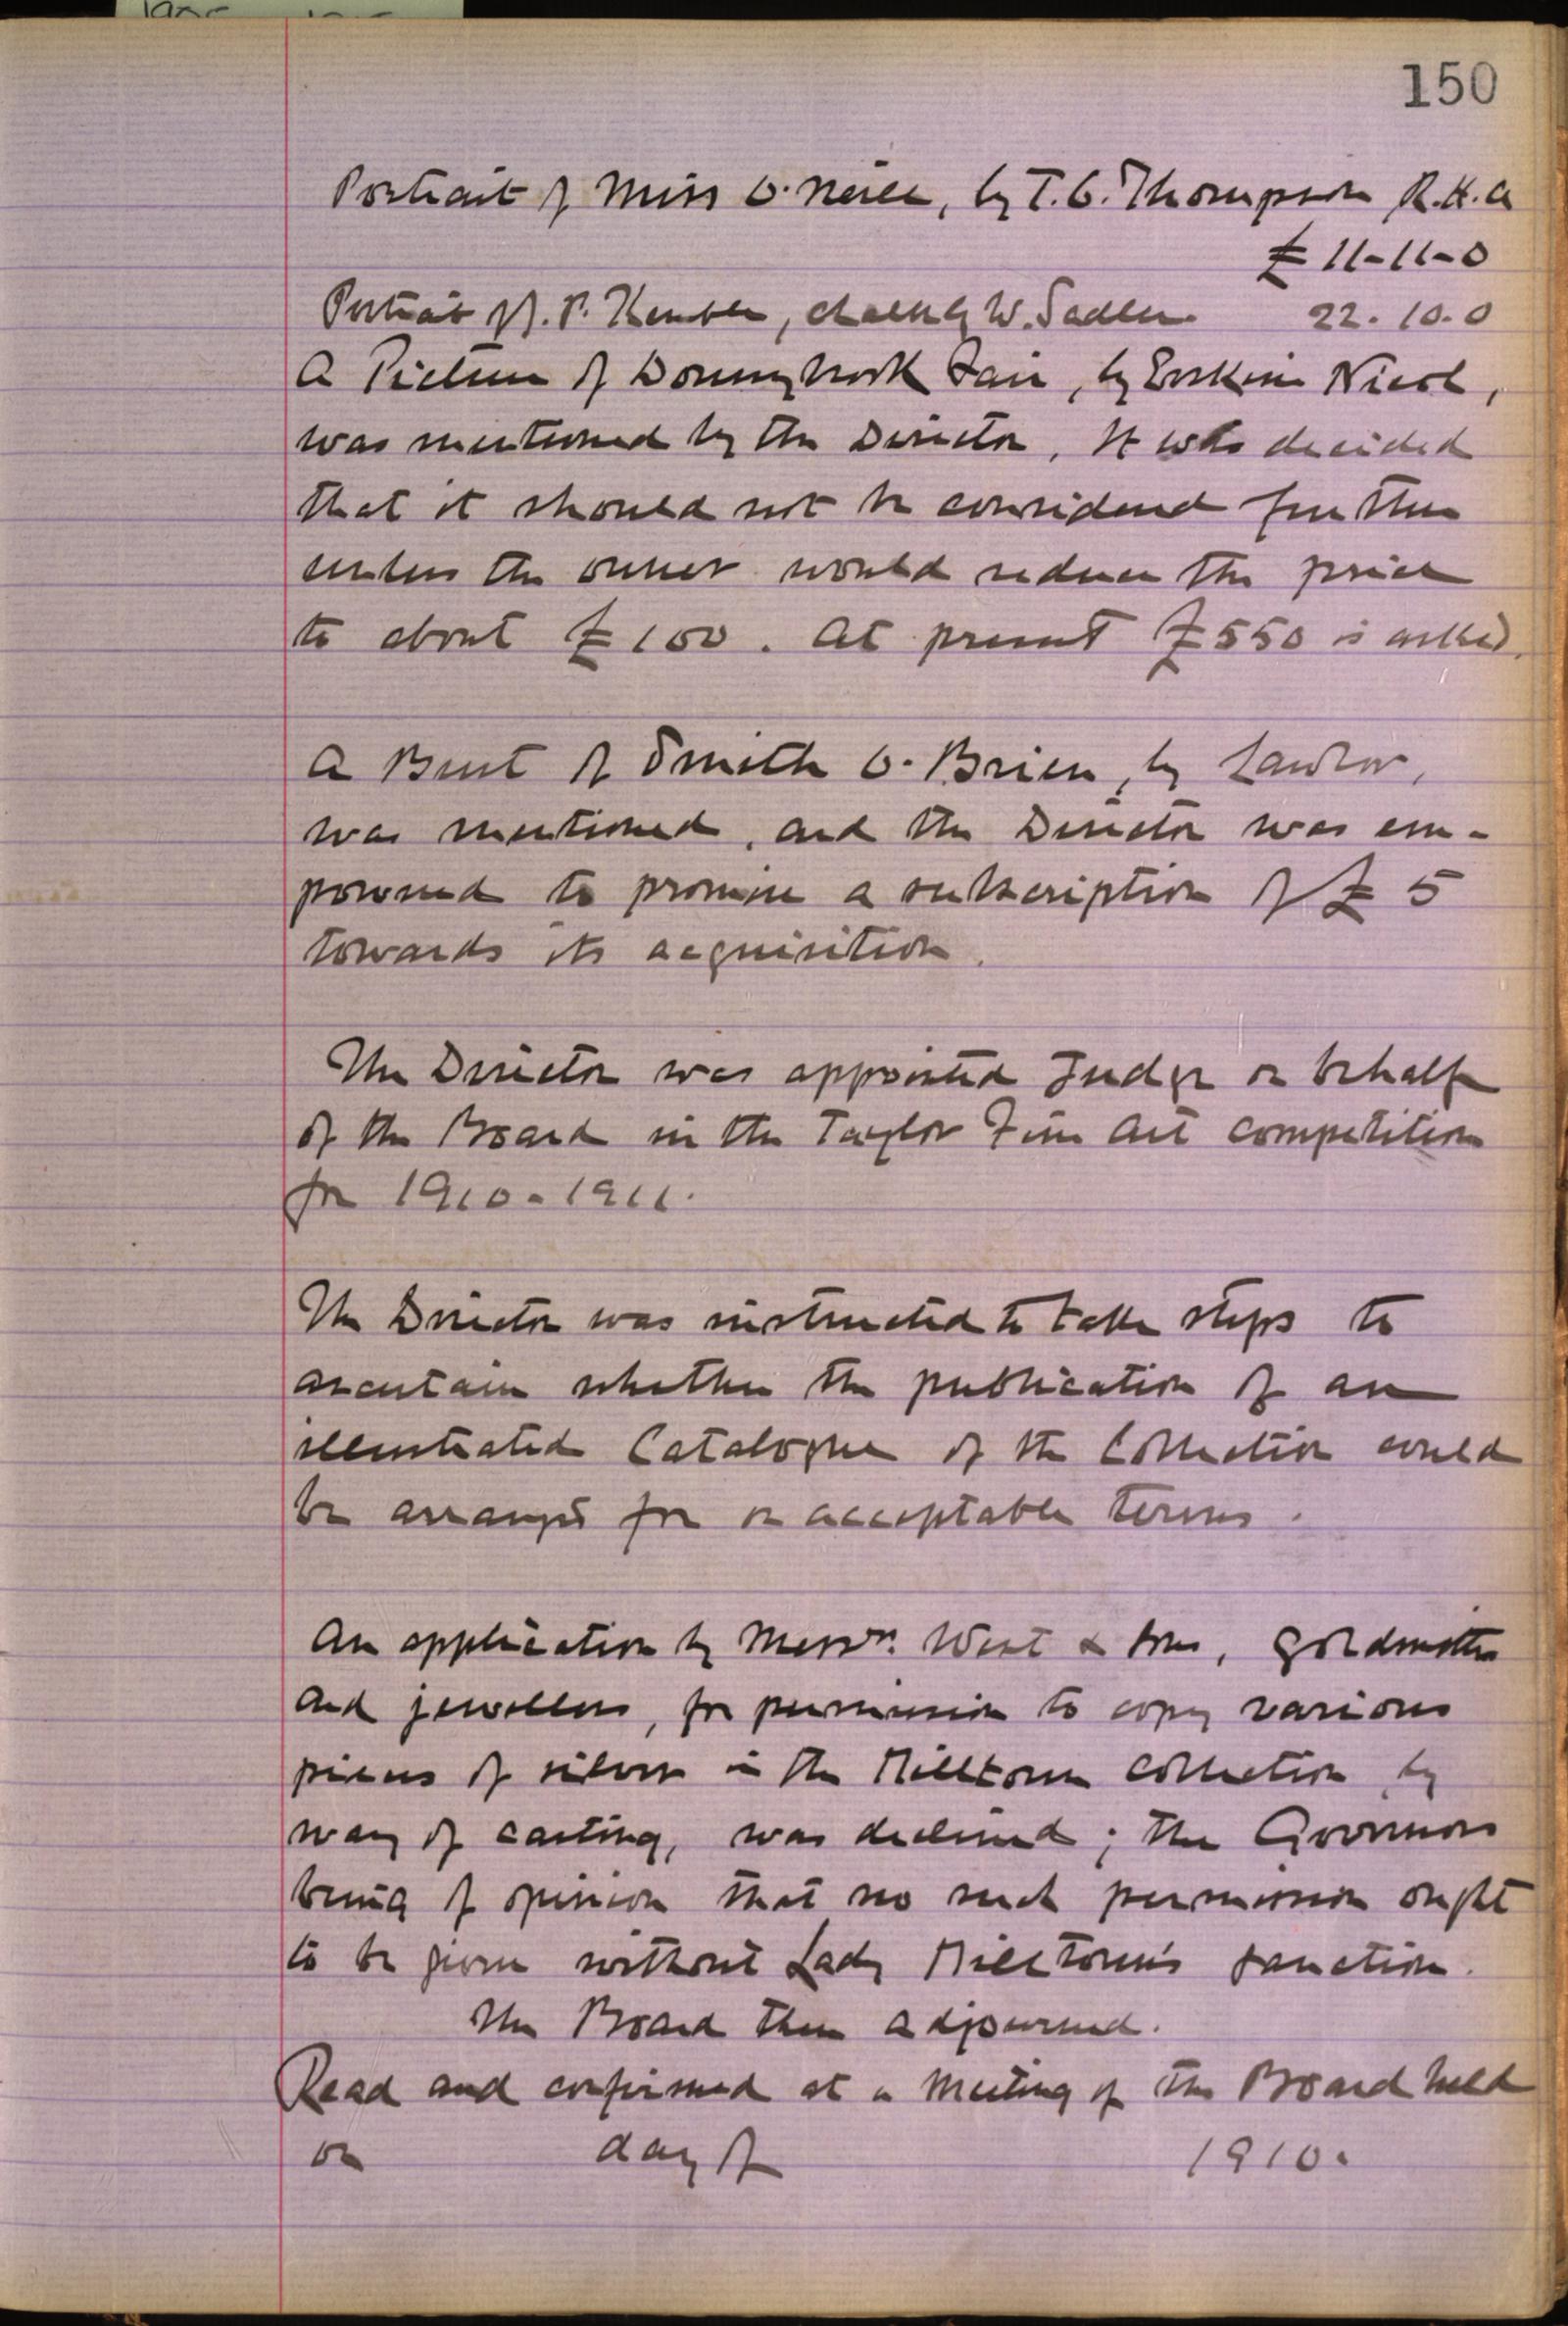 150
Portrait of Miss O'Neill, by T. C. Thompson R.H.A
£ 11-11-0
Portrait of J. P. Kemble, chalk by W. Sadler. 22. 10. 0
A Picture of Donnybrook Fair, by Erskine Nicol,
was mentioned by the Director. It was decided
that it should not be considered further
unless the owner would reduce the price
to about £100. At present £550 is asked.
A Bust of Smith O'Brien, by Lawlor,
was mentioned, and the Director was em-
powered to promise a subscription of £5
towards its acquisition.
The Director was appointed Judge on behalf
of the Board in the Taylor Fine Art Competition
for 1910-1911.
The Director was instructed to take steps to
ascertain whether the publication of an
illustrated Catalogue of the Collection could
be arranged for on acceptable terms.
An application by Messrs. West & Son, goldsmiths
and jewellers, for permission to copy various
pieces of silver in the Milltown Collection, by
way of casting, was declined; the Governors
being of opinion that no such permission ought
to be given without Lady Milltown's sanction.
The Board then adjourned.
Read and confirmed at a meeting of the Board held
on day of 1910.